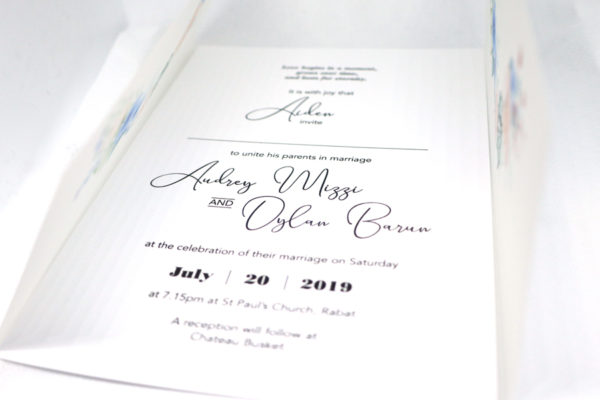 Love begins in a moment,
grows over time,
and lasts for eternity.
It is with joy that
Aiden
invite
to unite his parents in marriage
Audrey Mizzi
AND Dylan Barun
at the celebration of their marriage on Saturday
July | 20 | 2019
at 7.15pm at St Paul's Church, Rabat
A reception will follow at
Chateau Busket